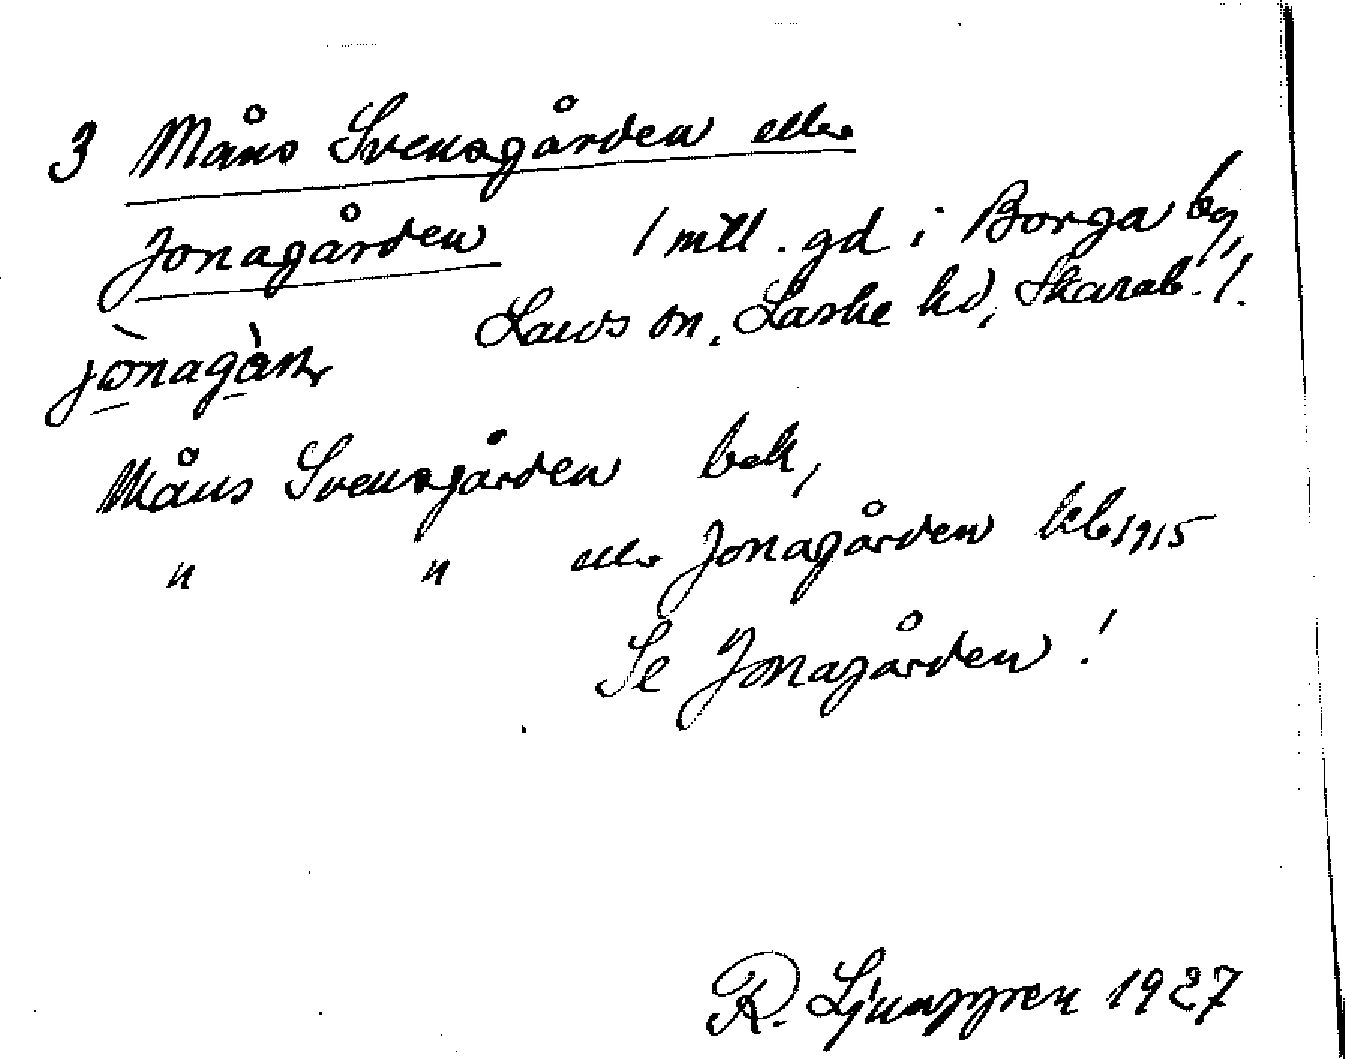 3 Måns Svensgården eller
Jonagården 1 mtl. gd i Borga by,
Lavs sn, Laske hd, Skarab. l.
jònagàṛ
Måns Svensgården bek,
" " eller Jonagården kb 1915
Se Jonagården!
R. Ljunggren 1927